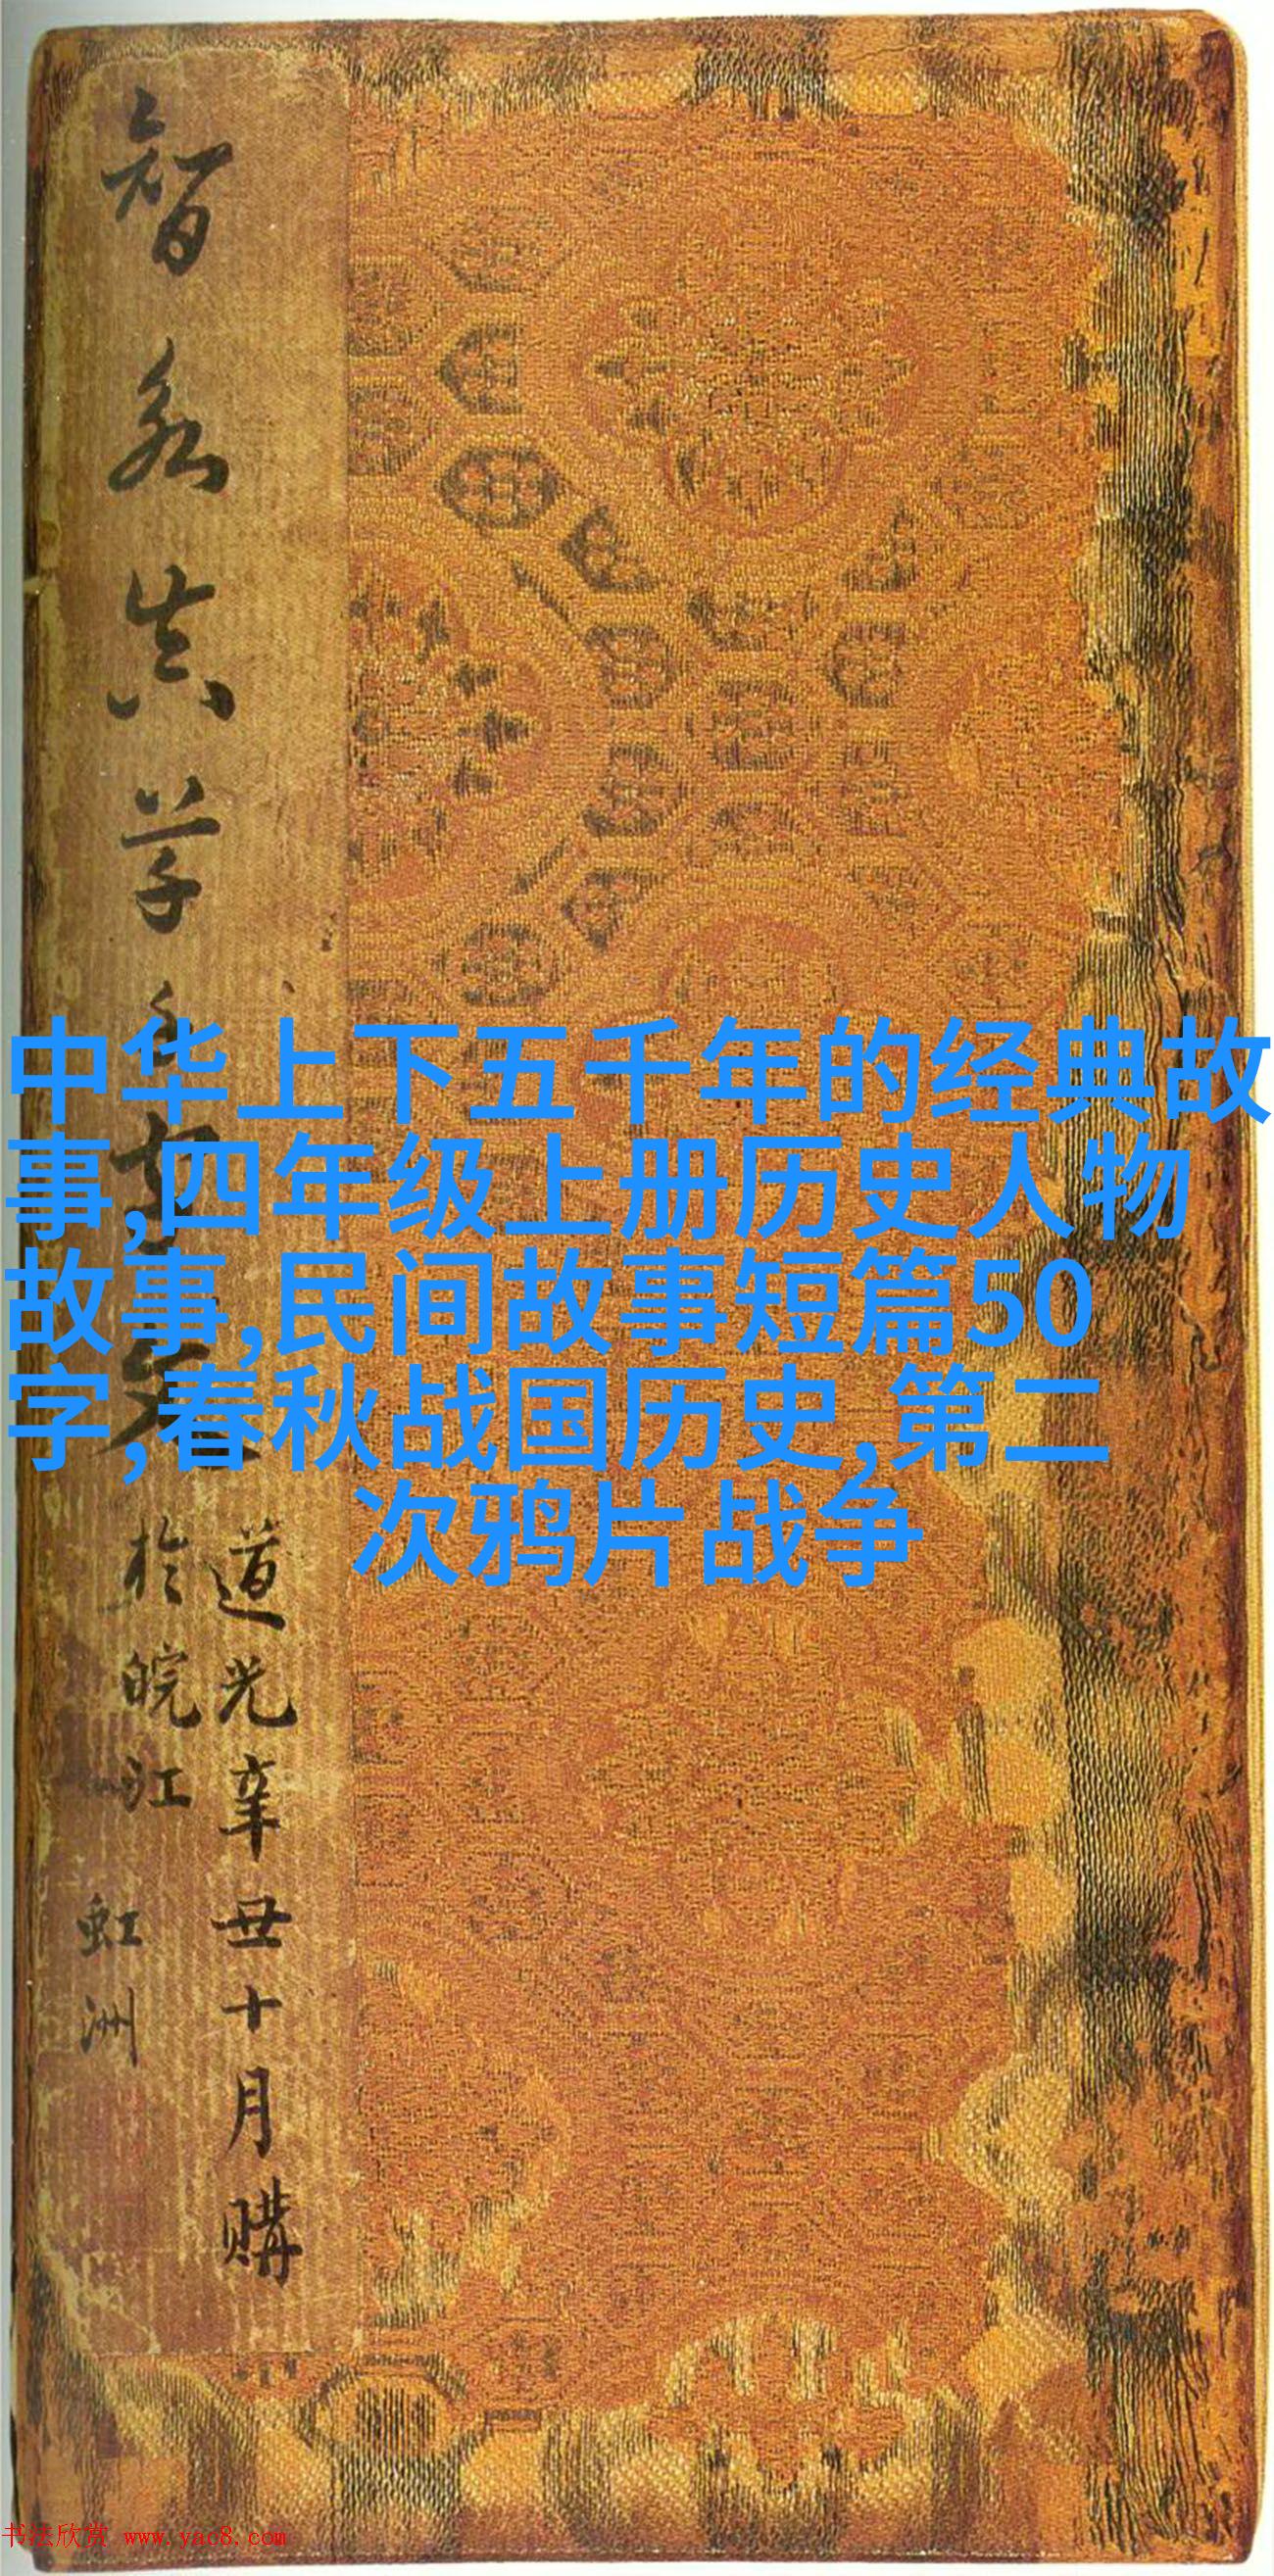 中华上下五千年的经典故
事,四年级上册历史人物
故事,民间故事短篇50
字,春秋战国历史,第二
次鸦片战争
智永真草千
道光辛丑十月購
於皖江
虹洲
书法欣赏 www.yac8.com